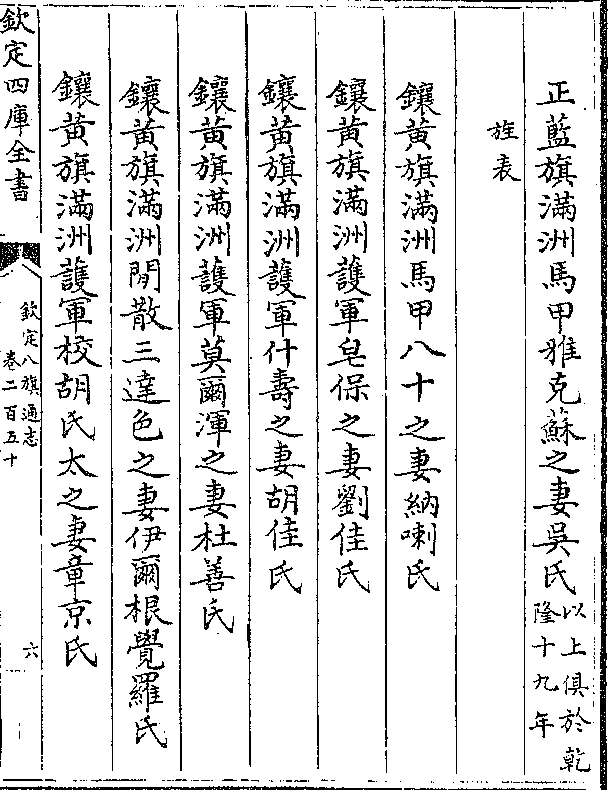 正藍旗滿洲馬甲雅克蘇之妻吳氏以上俱於乾隆十九年
旌表
鑲黃旗滿洲馬甲八十之妻納喇氏
鑲黃旗滿洲護軍皂保之妻劉佳氏
鑲黃旗滿洲護軍什壽之妻胡佳氏
鑲黃旗滿洲護軍莫爾渾之妻杜善氏
鑲黃旗滿洲閒散三達色之妻伊爾根覺羅氏
鑲黃旗滿洲護軍校胡氏太之妻章京氏
欽定四庫全書
欽定八旗通志
卷二百五十
六